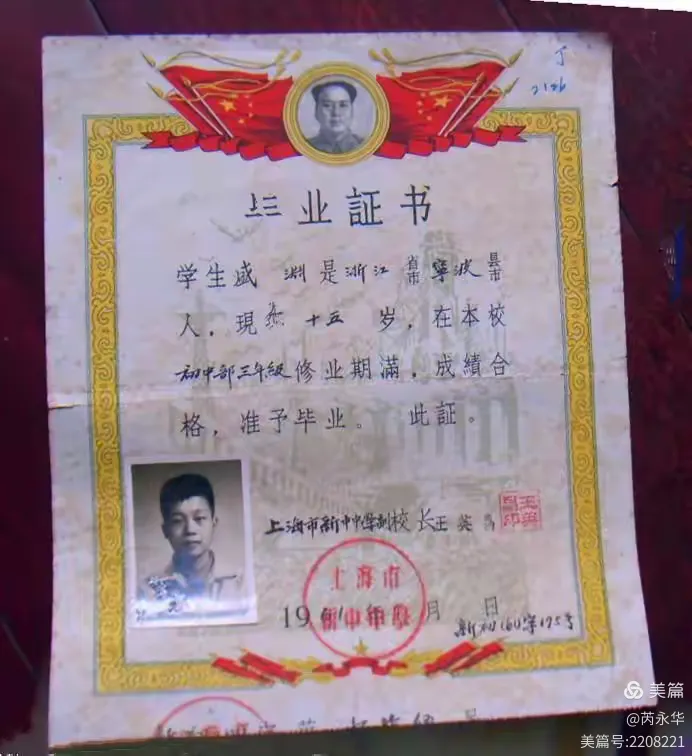 丁
2126
毕业証书
学生盛 渊是浙江省市寧波县市
人，現年 十五 岁，在本校
初中部三年級修业期滿，成績合
格，准予毕业。 此証。
上海市新中中学副校长王英
上海市
新中中学
1961年 月 日
新初(61)字175号
美篇
@芮永华
美篇号:2208221